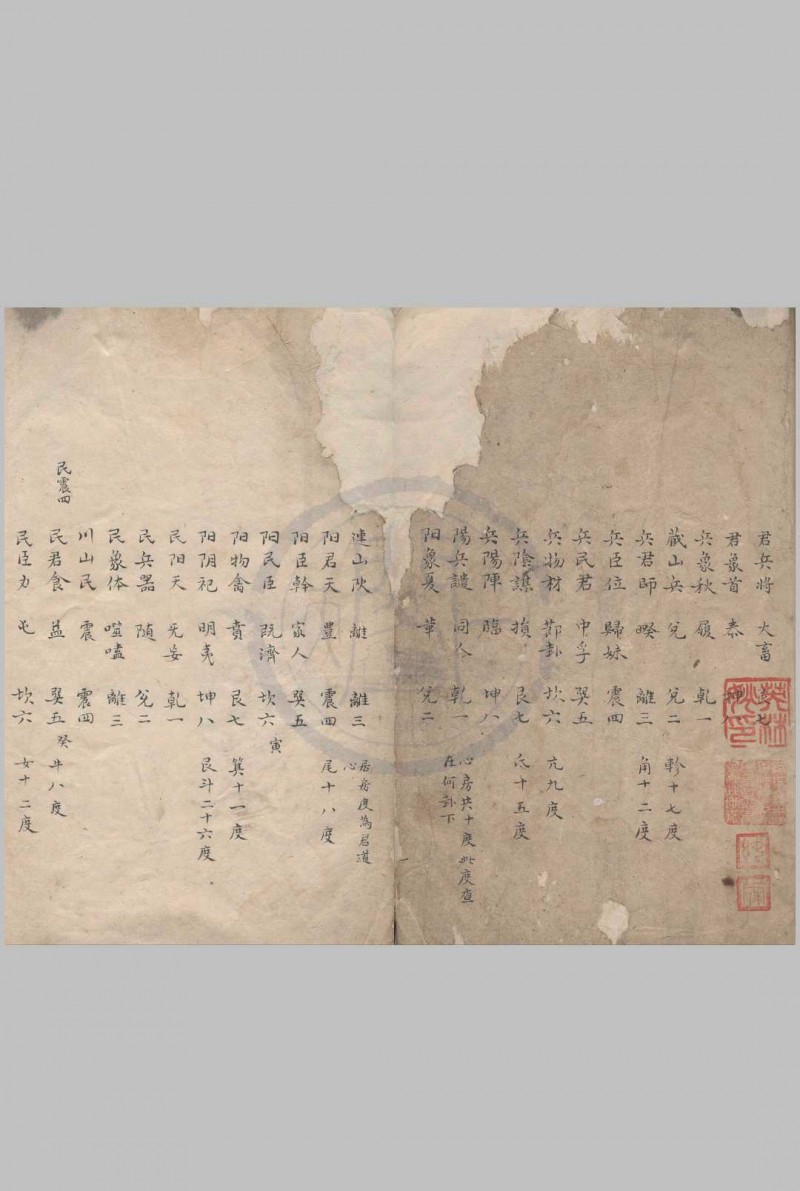 君兵將 大畜 七
君象首 泰 坤
兵象秋 履 乾一
藏山兵 兌 兌二 軫十七度
兵君師 睽 離三 角十二度
兵臣位 歸妹 震四
兵民君 中孚 巽五
兵物材 節卦 坎六 亢九度
兵陰謀 損 艮七 氐十五度
兵陽陣 臨 坤八
陽兵譴 同人 乾一 心房共十度 此度查
在何卦下
阳象夏 革 兌二
連山陽 離 離三 心
居房度為君道
阳君天 豐 震四 尾十八度
阳臣幹 家人 巽五
阳民臣 既濟 坎六 寅
阳物禽 賁 艮七 箕十一度
阳阴祀 明夷 坤八 艮斗二十六度
民阳天 无妄 乾一
民兵器 随 兌二
民象体 噬嗑 離三
川山民 震 震四
民震四
民君食 益 巽五 癸 牛八度
民臣力 屯 坎六 女十二度